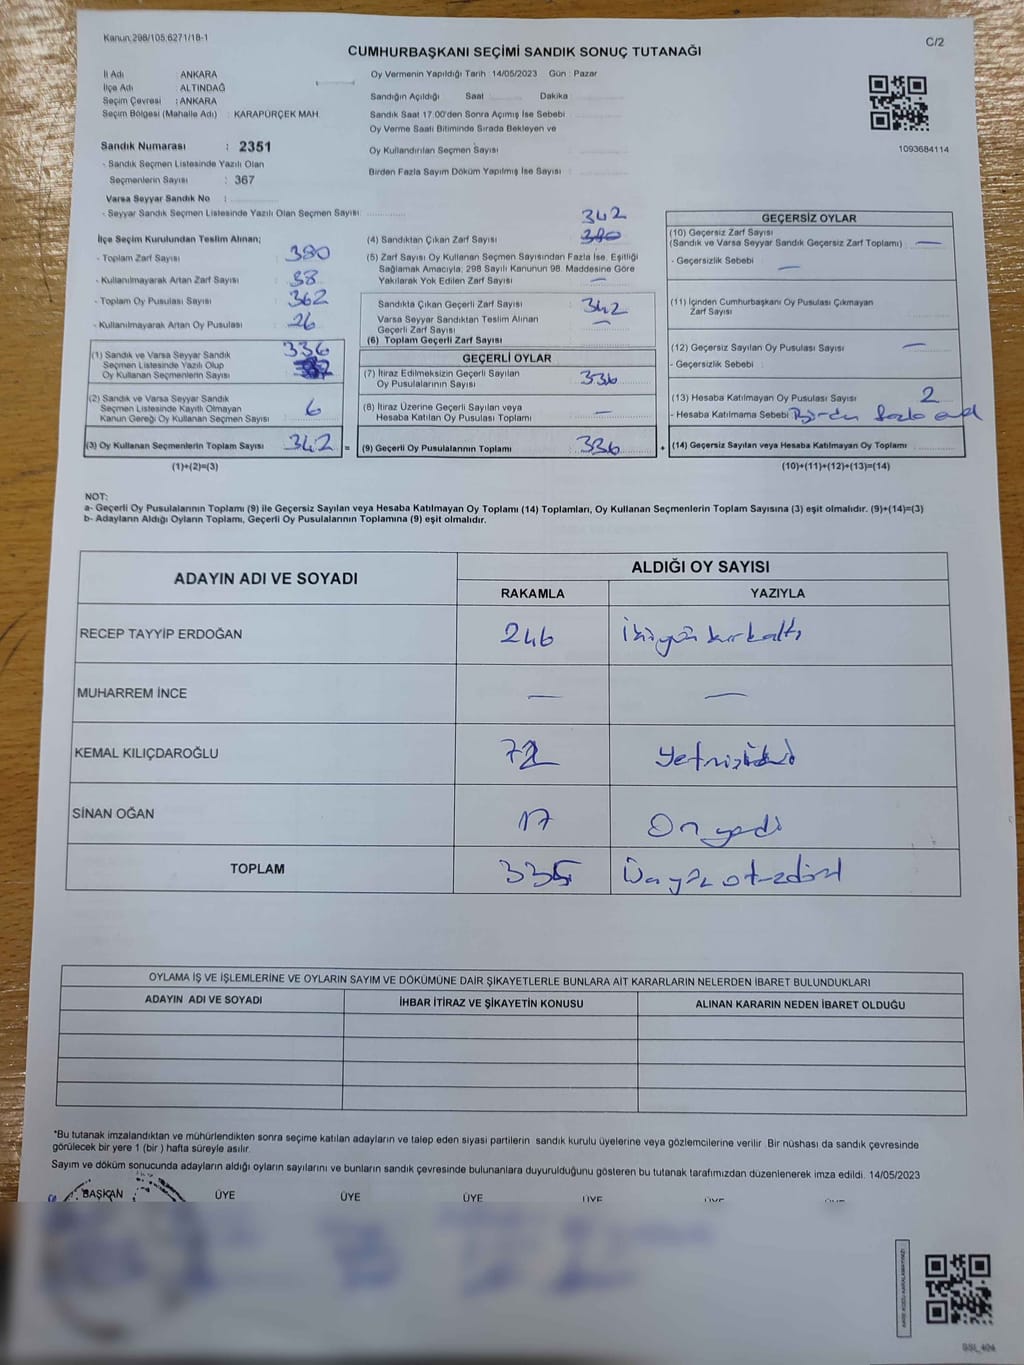 Kanun:298/105,6271/18-1
C/2
CUMHURBAŞKANI SEÇİMİ SANDIK SONUÇ TUTANAĞI
İl Adı : ANKARA
İlçe Adı : ALTINDAĞ
Seçim Çevresi : ANKARA
Seçim Bölgesi (Mahalle Adı) : KARAPÜRÇEK MAH.
Sandık Numarası : 2351
- Sandık Seçmen Listesinde Yazılı Olan
Seçmenlerin Sayısı : 367
Varsa Seyyar Sandık No :
- Seyyar Sandık Seçmen Listesinde Yazılı Olan Seçmen Sayısı:
Oy Vermenin Yapıldığı Tarih : 14/05/2023 Gün : Pazar
Sandığın Açıldığı Saat Dakika
Sandık Saat 17.00'den Sonra Açımış İse Sebebi :
Oy Verme Saati Bitiminde Sırada Bekleyen ve
Oy Kullandırılan Seçmen Sayısı :
Birden Fazla Sayım Döküm Yapılmış İse Sayısı :
1093684114
İlçe Seçim Kurulundan Teslim Alınan;
- Toplam Zarf Sayısı : 380
- Kullanılmayarak Artan Zarf Sayısı : 38
- Toplam Oy Pusulası Sayısı : 362
- Kullanılmayarak Artan Oy Pusulası : 26
(1) Sandık ve Varsa Seyyar Sandık
Seçmen Listesinde Yazılı Olup
Oy Kullanan Seçmenlerin Sayısı : 336
(2) Sandık ve Varsa Seyyar Sandık
Seçmen Listesinde Kayıtlı Olmayan
Kanun Gereği Oy Kullanan Seçmen Sayısı : 6
(3) Oy Kullanan Seçmenlerin Toplam Sayısı : 342 =
(1)+(2)=(3)
342
(4) Sandıktan Çıkan Zarf Sayısı : 380
(5) Zarf Sayısı Oy Kullanan Seçmen Sayısından Fazla İse, Eşitliği
Sağlamak Amacıyla; 298 Sayılı Kanunun 98. Maddesine Göre
Yakılarak Yok Edilen Zarf Sayısı : —
Sandıkta Çıkan Geçerli Zarf Sayısı : 342
Varsa Seyyar Sandıktan Teslim Alınan
Geçerli Zarf Sayısı : —
(6) Toplam Geçerli Zarf Sayısı
GEÇERLİ OYLAR
(7) İtiraz Edilmeksizin Geçerli Sayılan
Oy Pusulalarının Sayısı : 336
(8) İtiraz Üzerine Geçerli Sayılan veya
Hesaba Katılan Oy Pusulası Toplamı : —
(9) Geçerli Oy Pusulalarının Toplamı : 336 +
GEÇERSİZ OYLAR
(10) Geçersiz Zarf Sayısı
(Sandık ve Varsa Seyyar Sandık Geçersiz Zarf Toplamı) : —
- Geçersizlik Sebebi : —
(11) İçinden Cumhurbaşkanı Oy Pusulası Çıkmayan
Zarf Sayısı :
(12) Geçersiz Sayılan Oy Pusulası Sayısı : —
- Geçersizlik Sebebi :
(13) Hesaba Katılmayan Oy Pusulası Sayısı : 2
- Hesaba Katılmama Sebebi : Birden fazla
(14) Geçersiz Sayılan veya Hesaba Katılmayan Oy Toplamı :
(10)+(11)+(12)+(13)=(14)
NOT:
a- Geçerli Oy Pusulalarının Toplamı (9) ile Geçersiz Sayılan veya Hesaba Katılmayan Oy Toplamı (14) Toplamları, Oy Kullanan Seçmenlerin Toplam Sayısına (3) eşit olmalıdır. (9)+(14)=(3)
b- Adayların Aldığı Oyların Toplamı, Geçerli Oy Pusulalarının Toplamına (9) eşit olmalıdır.
ADAYIN ADI VE SOYADI
ALDIĞI OY SAYISI
RAKAMLA YAZIYLA
RECEP TAYYİP ERDOĞAN 246 İkiyüz kırkaltı
MUHARREM İNCE — —
KEMAL KILIÇDAROĞLU 72 Yetmişiki
SİNAN OĞAN 17 Onyedi
TOPLAM 335
OYLAMA İŞ VE İŞLEMLERİNE VE OYLARIN SAYIM VE DÖKÜMÜNE DAİR ŞİKAYETLERLE BUNLARA AİT KARARLARIN NELERDEN İBARET BULUNDUKLARI
ADAYIN ADI VE SOYADI İHBAR İTİRAZ VE ŞİKAYETİN KONUSU ALINAN KARARIN NEDEN İBARET OLDUĞU
*Bu tutanak imzalandıktan ve mühürlendikten sonra seçime katılan adayların ve talep eden siyasi partilerin sandık kurulu üyelerine veya gözlemcilerine verilir. Bir nüshası da sandık çevresinde
görülecek bir yere 1 (bir ) hafta süreyle asılır.
Sayım ve döküm sonucunda adayların aldığı oyların sayılarını ve bunların sandık çevresinde bulunanlara duyurulduğunu gösteren bu tutanak tarafımızdan düzenlenerek imza edildi. 14/05/2023
BAŞKAN ÜYE ÜYE ÜYE ÜYE